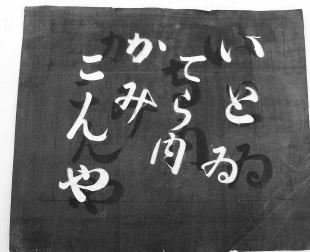 いとゐ
てら内
かみ
こんや